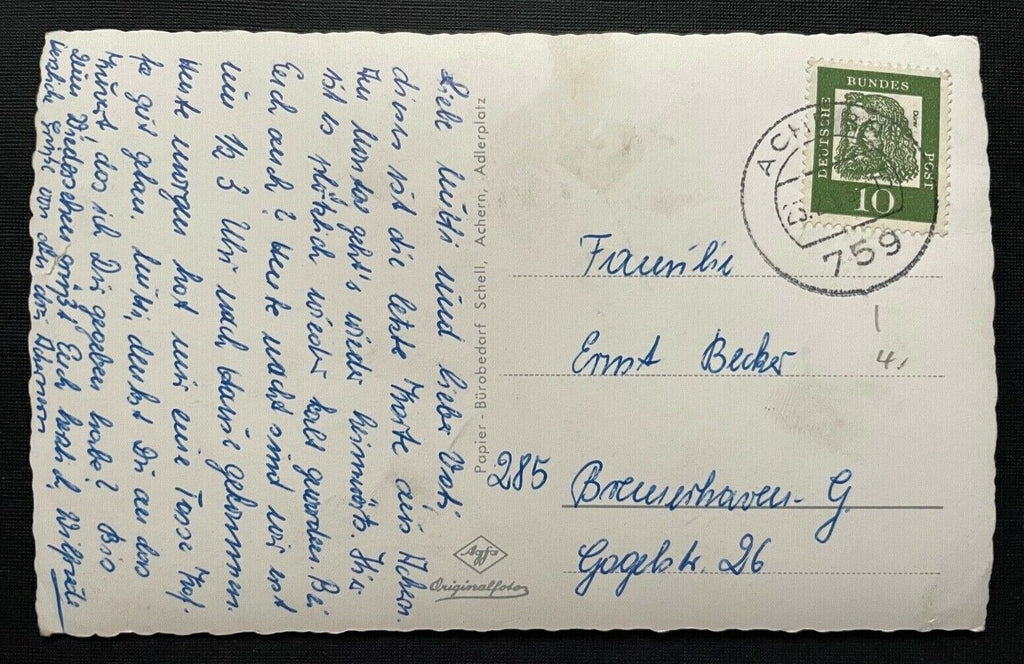 Liebe Mutti und lieber Vati,
dieses ist die letzte Karte aus Achern.
Am Montag geht's wieder heimwärts. Hier
ist es plötzlich wieder kalt geworden. Bei
Euch auch? Heute nacht sind wir erst
um ½ 3 Uhr nach Hause gekommen.
Heute morgen hat mir eine Tasse Kaf-
fe gut getan. Mutti, denkst Du an das
das ich Dir gegeben habe? Bis
zum Wiedersehen grüßt Euch herzlich, Wilfriede
Grüße von den
Papier - Bürobedarf Schell, Achern, Adlerplatz
Agfa
Originalfoto
DEUTSCHE BUNDES POST
Dürer
10
ACHERN
759
Familie
Ernst Becker
285 Bremerhaven - G.
Gogelstr. 26
1
4.